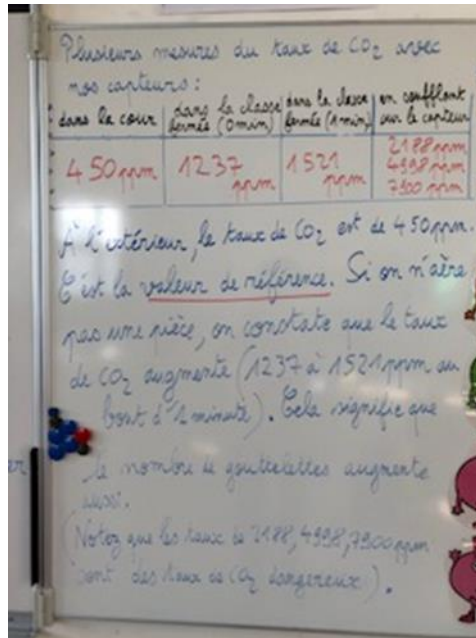 Plusieurs mesures du taux de CO₂ avec
nos capteurs :
dans la cour | dans la classe fermée (0 min) | dans la classe fermée (1 min) | en soufflant sur le capteur
450 ppm | 1237 ppm | 1521 ppm | 2188 ppm 4998 ppm 7900 ppm
À l'extérieur, le taux de CO₂ est de 450 ppm.
C'est la valeur de référence. Si on n'aère
pas une pièce, on constate que le taux
de CO₂ augmente (1237 à 1521 ppm au
bout d'1 minute). Cela signifie que
le nombre de gouttelettes augmente
aussi.
(Notez que les taux de 2188, 4998, 7900 ppm
sont des taux de CO₂ dangereux).